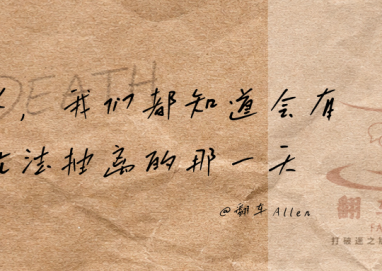 DEATH
，我们都知道会有
法抽离的那一天
@翻车Allen
翻
FA
打破迷之